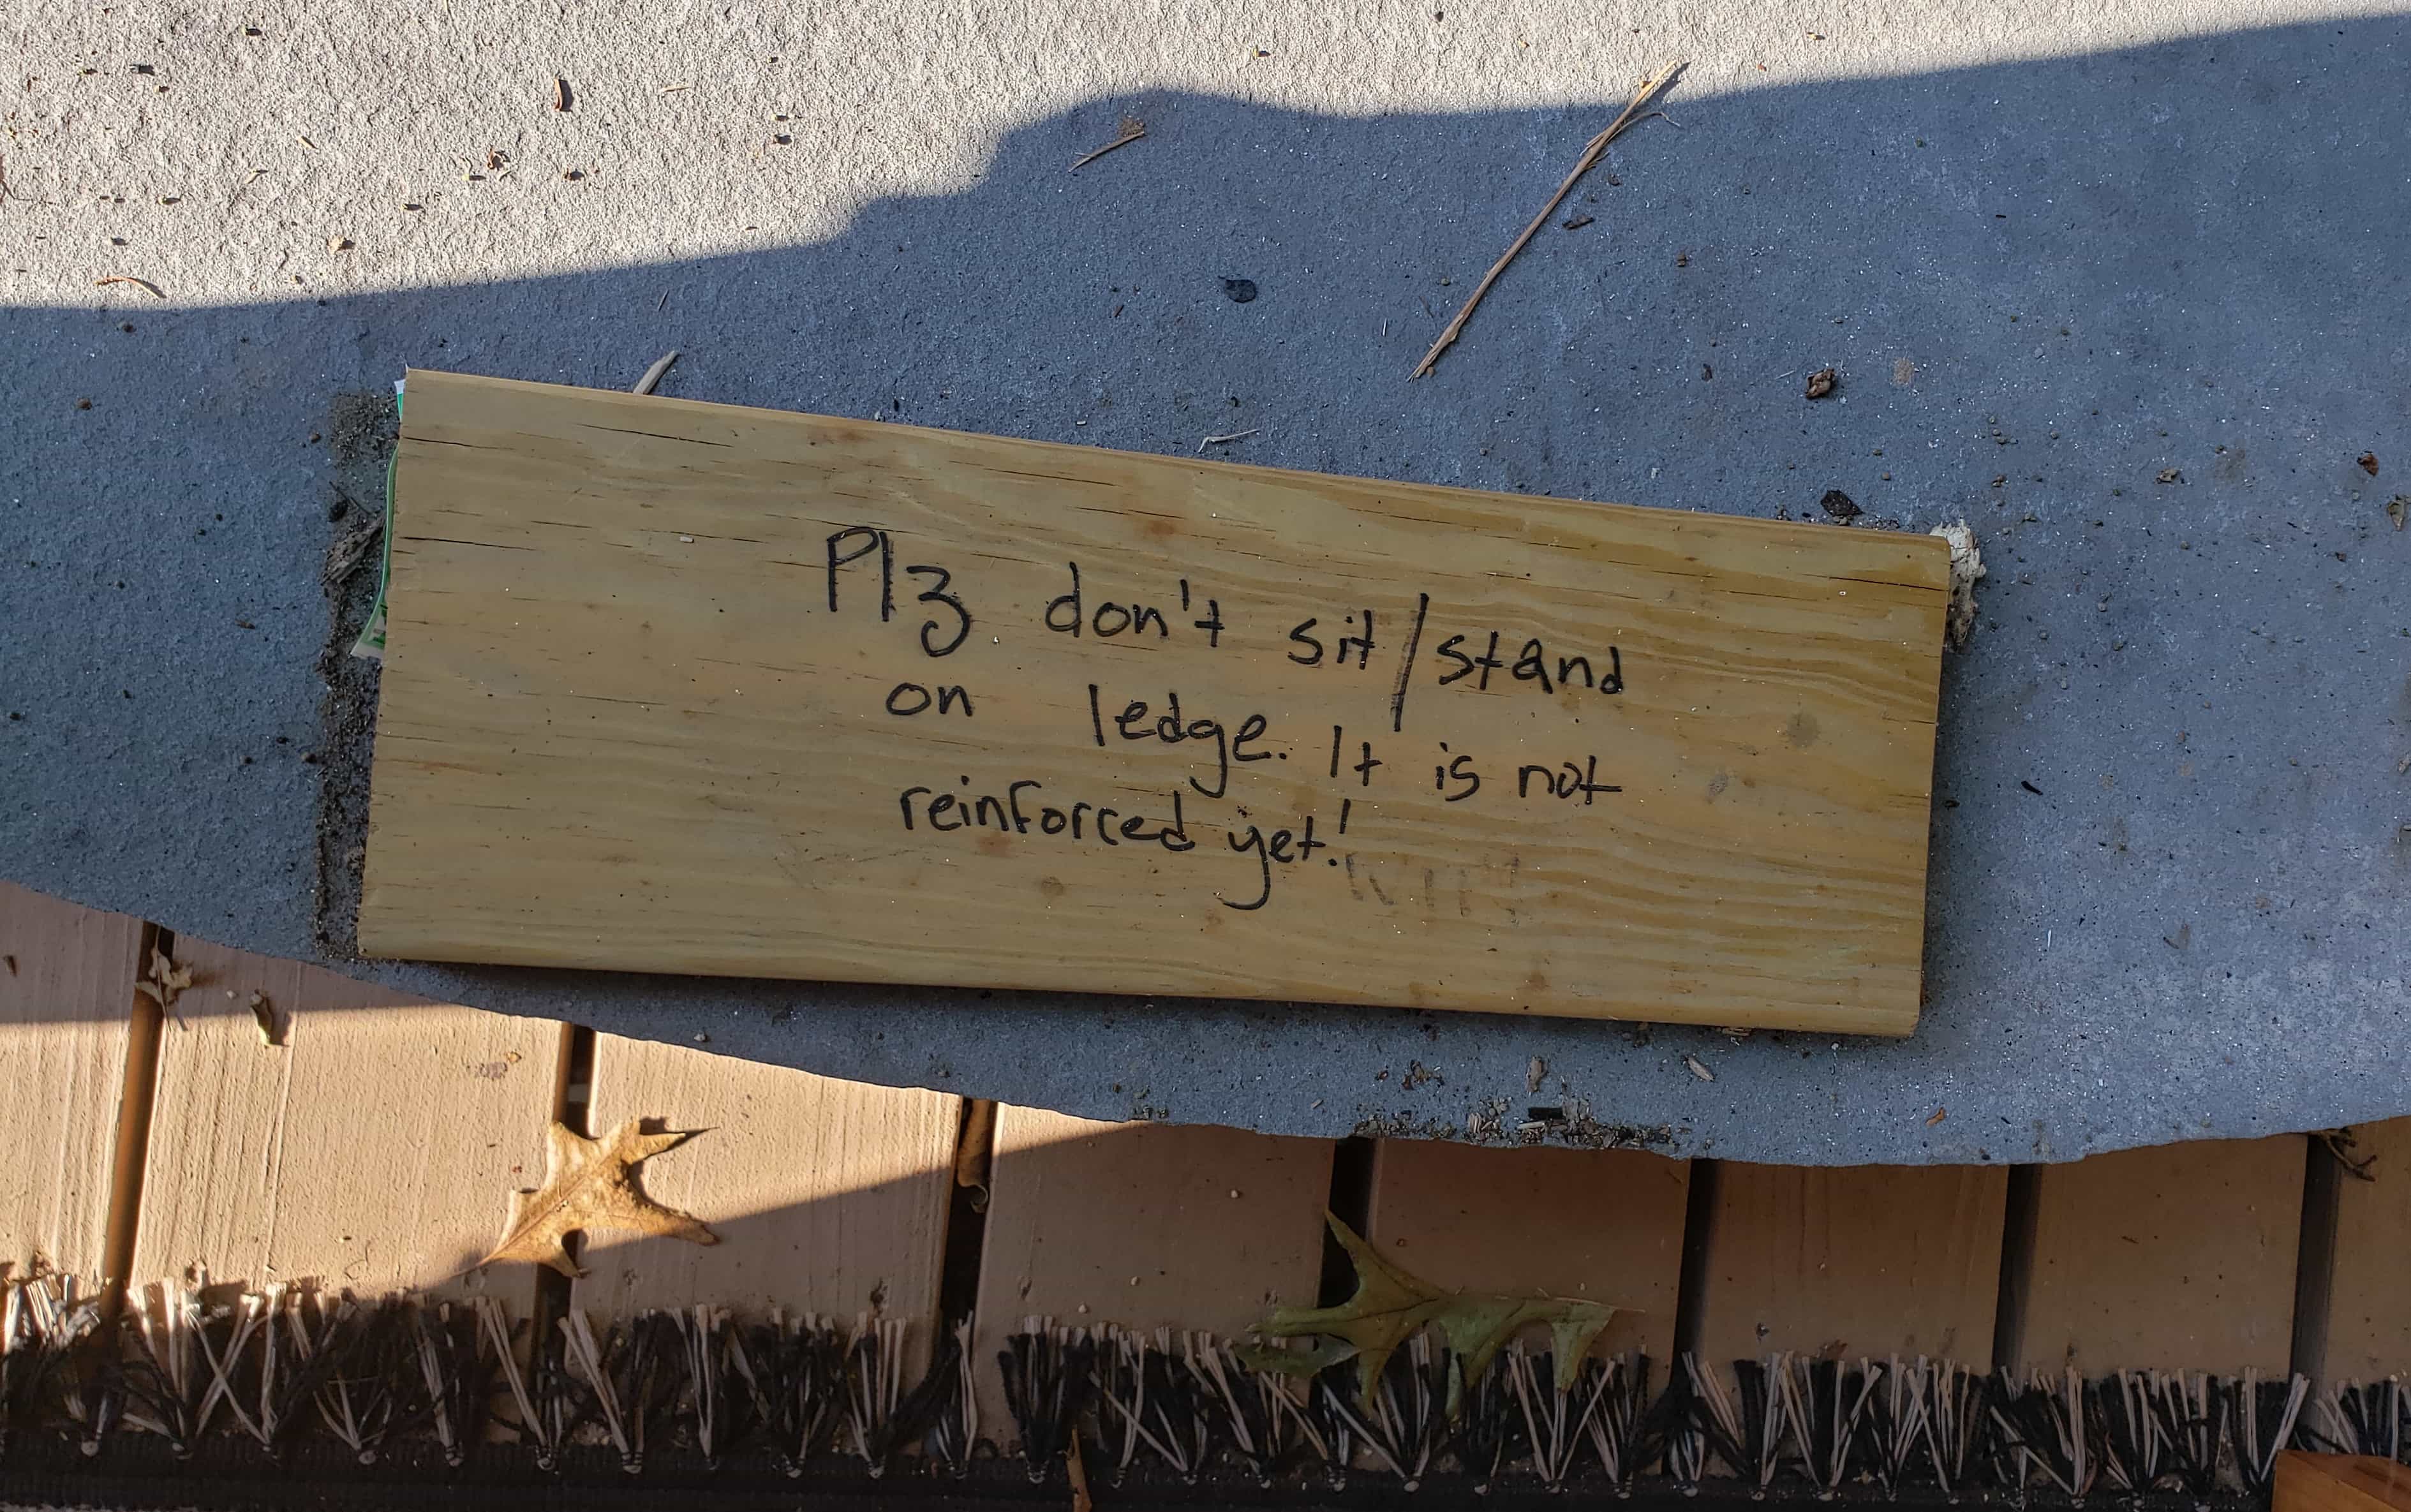 Plz don't sit/stand
on ledge. It is not
reinforced yet!